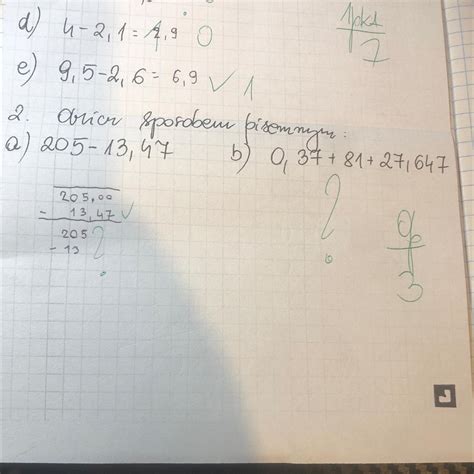 d) 4 - 2,1 = 1,9 0
1 pkt
7
e) 9,5 - 2,6 = 6,9 ✓ 1
2. sposobem pisemnym:
a) 205 - 13,47 b) 0,37 + 81 + 27,647
205,00
- 13,47 ✓
205
- 13 ?
?
0p
3